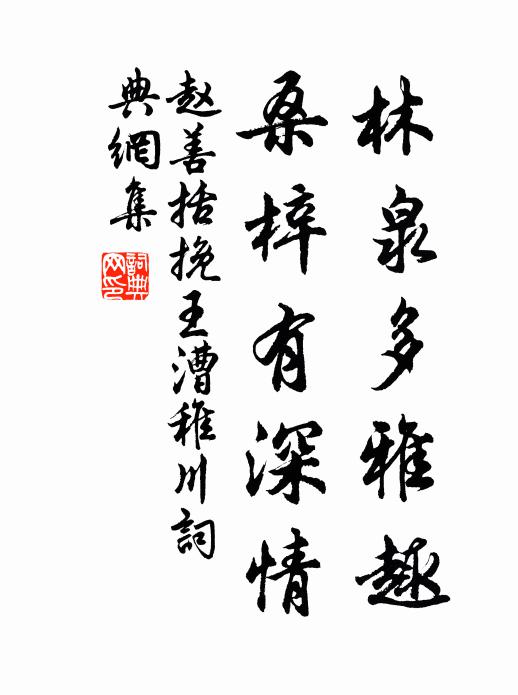 林泉多雅趣
桑梓有深情
赵善括挽王漕稚川词
典網集
詞典网印